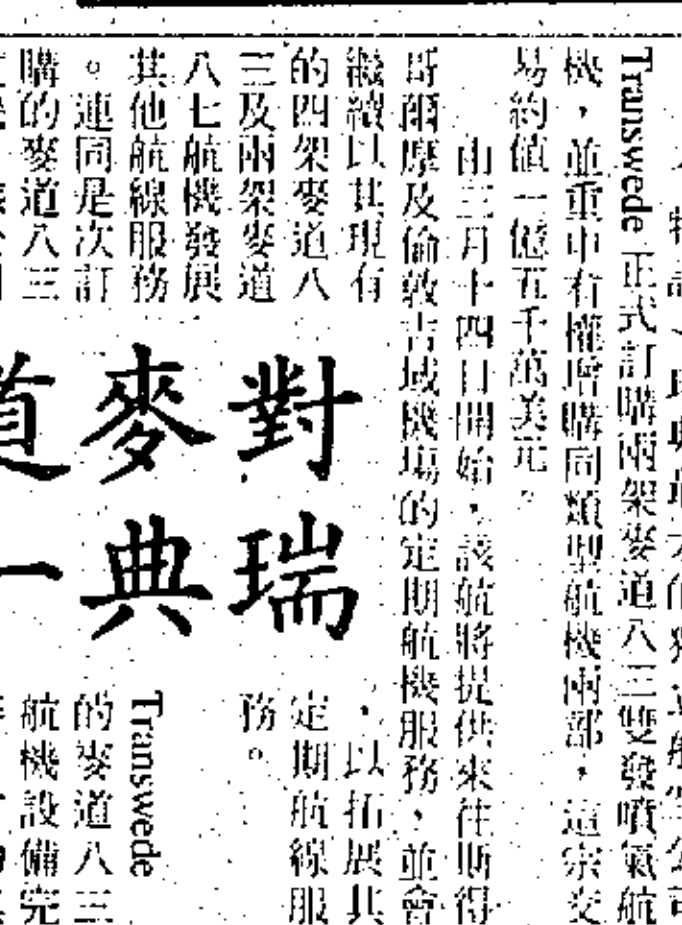 Transwede 正式訂購兩架麥道八三雙發噴氣航
機，並重申有權增購同類型航機兩部，這宗交
易約值一億五千萬美元。
由三月十四日開始，該航將提供來往斯得
哥爾摩及倫敦吉域機場的定期航機服務，並會
繼續以其現有
的四架麥道八
三及兩架麥道
八七航機發展
其他航線服務
。連同是次訂
購的麥道八三
對瑞
麥典
道一
，以拓展其
定期航線服
務。
Transwede
的麥道八三
航機設備完